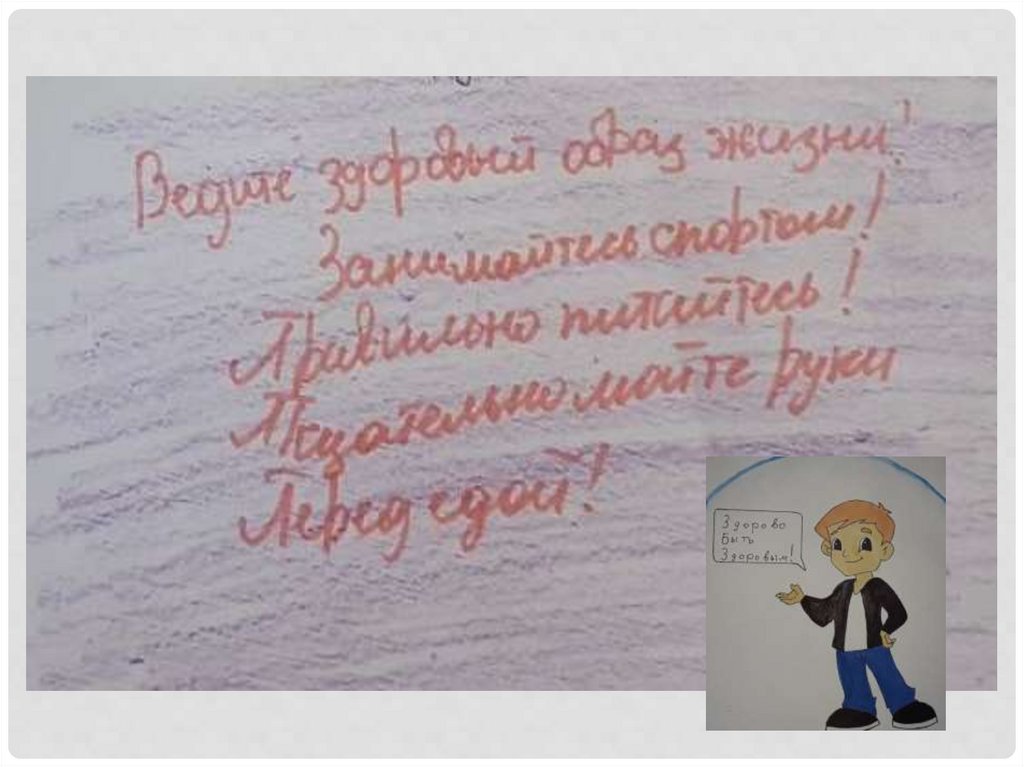 Ведите здоровый образ жизни!
Занимайтесь спортом!
Правильно питайтесь!
Тщательно мойте руки
Перед едой!
Здорово
Быть
Здоровым!